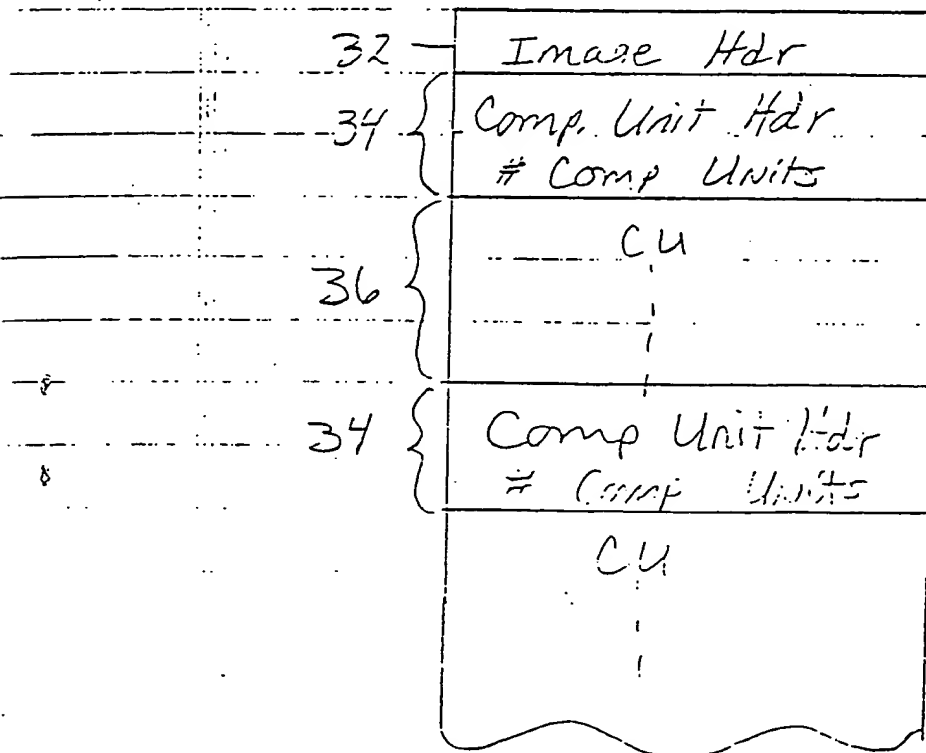 32 Image Hdr
34 Comp. Unit Hdr
# Comp Units
36 CU
34 Comp Unit Hdr
# Comp Units
CU